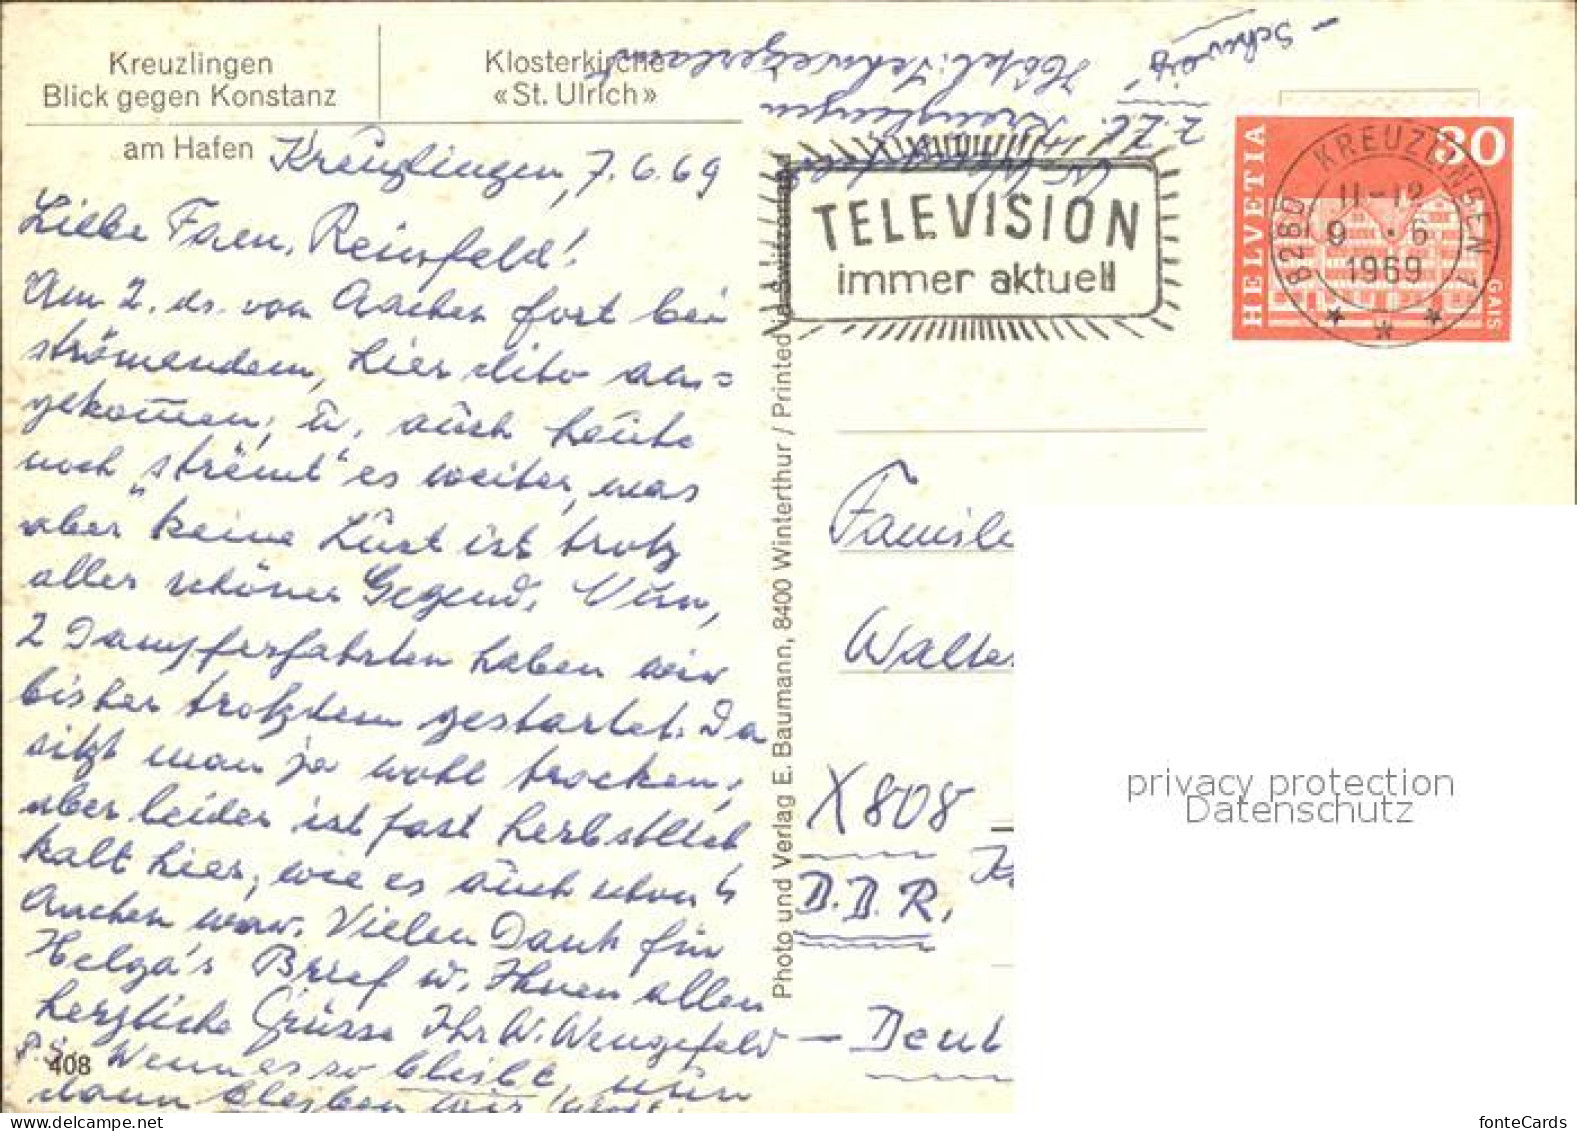 Kreuzlingen
Blick gegen Konstanz
Klosterkirche
«St. Ulrich»
am Hafen
Kreuzlingen, 7.6.69
Liebe Fam. Reinsfeld!
Am 2. ds. von Aachen fort bei
strömendem, hier dito an=
gekommen; u. auch heute
noch „strömt“ es weiter, was
aber keine Lust ist trotz
aller schöner Gegend. Nun,
2 Dampferfahrten haben wir
bisher trotzdem gestartet. Da
sitzt man ja wohl trocken,
aber leider ist fast herbstlich
kalt hier, wie es auch schon in
Aachen war. Vielen Dank für
Helga's Brief u. Ihnen allen
herzliche Grüsse Ihr W. Wengefeld
P.S. Wenn es so bleibt, nun
dann bleiben wir
408
Photo und Verlag E. Baumann, 8400 Winterthur / Printed
z. Zt. Kreuzlingen
Hotel: Schweizerland
- Schweiz
TELEVISION
immer aktuell
HELVETIA
30
GAIS
8280 KREUZLINGEN 1
11-12
9.6
1969
Famil
Walte
X808
D.D.R.
- Deut
privacy protection
Datenschutz
fonteCards